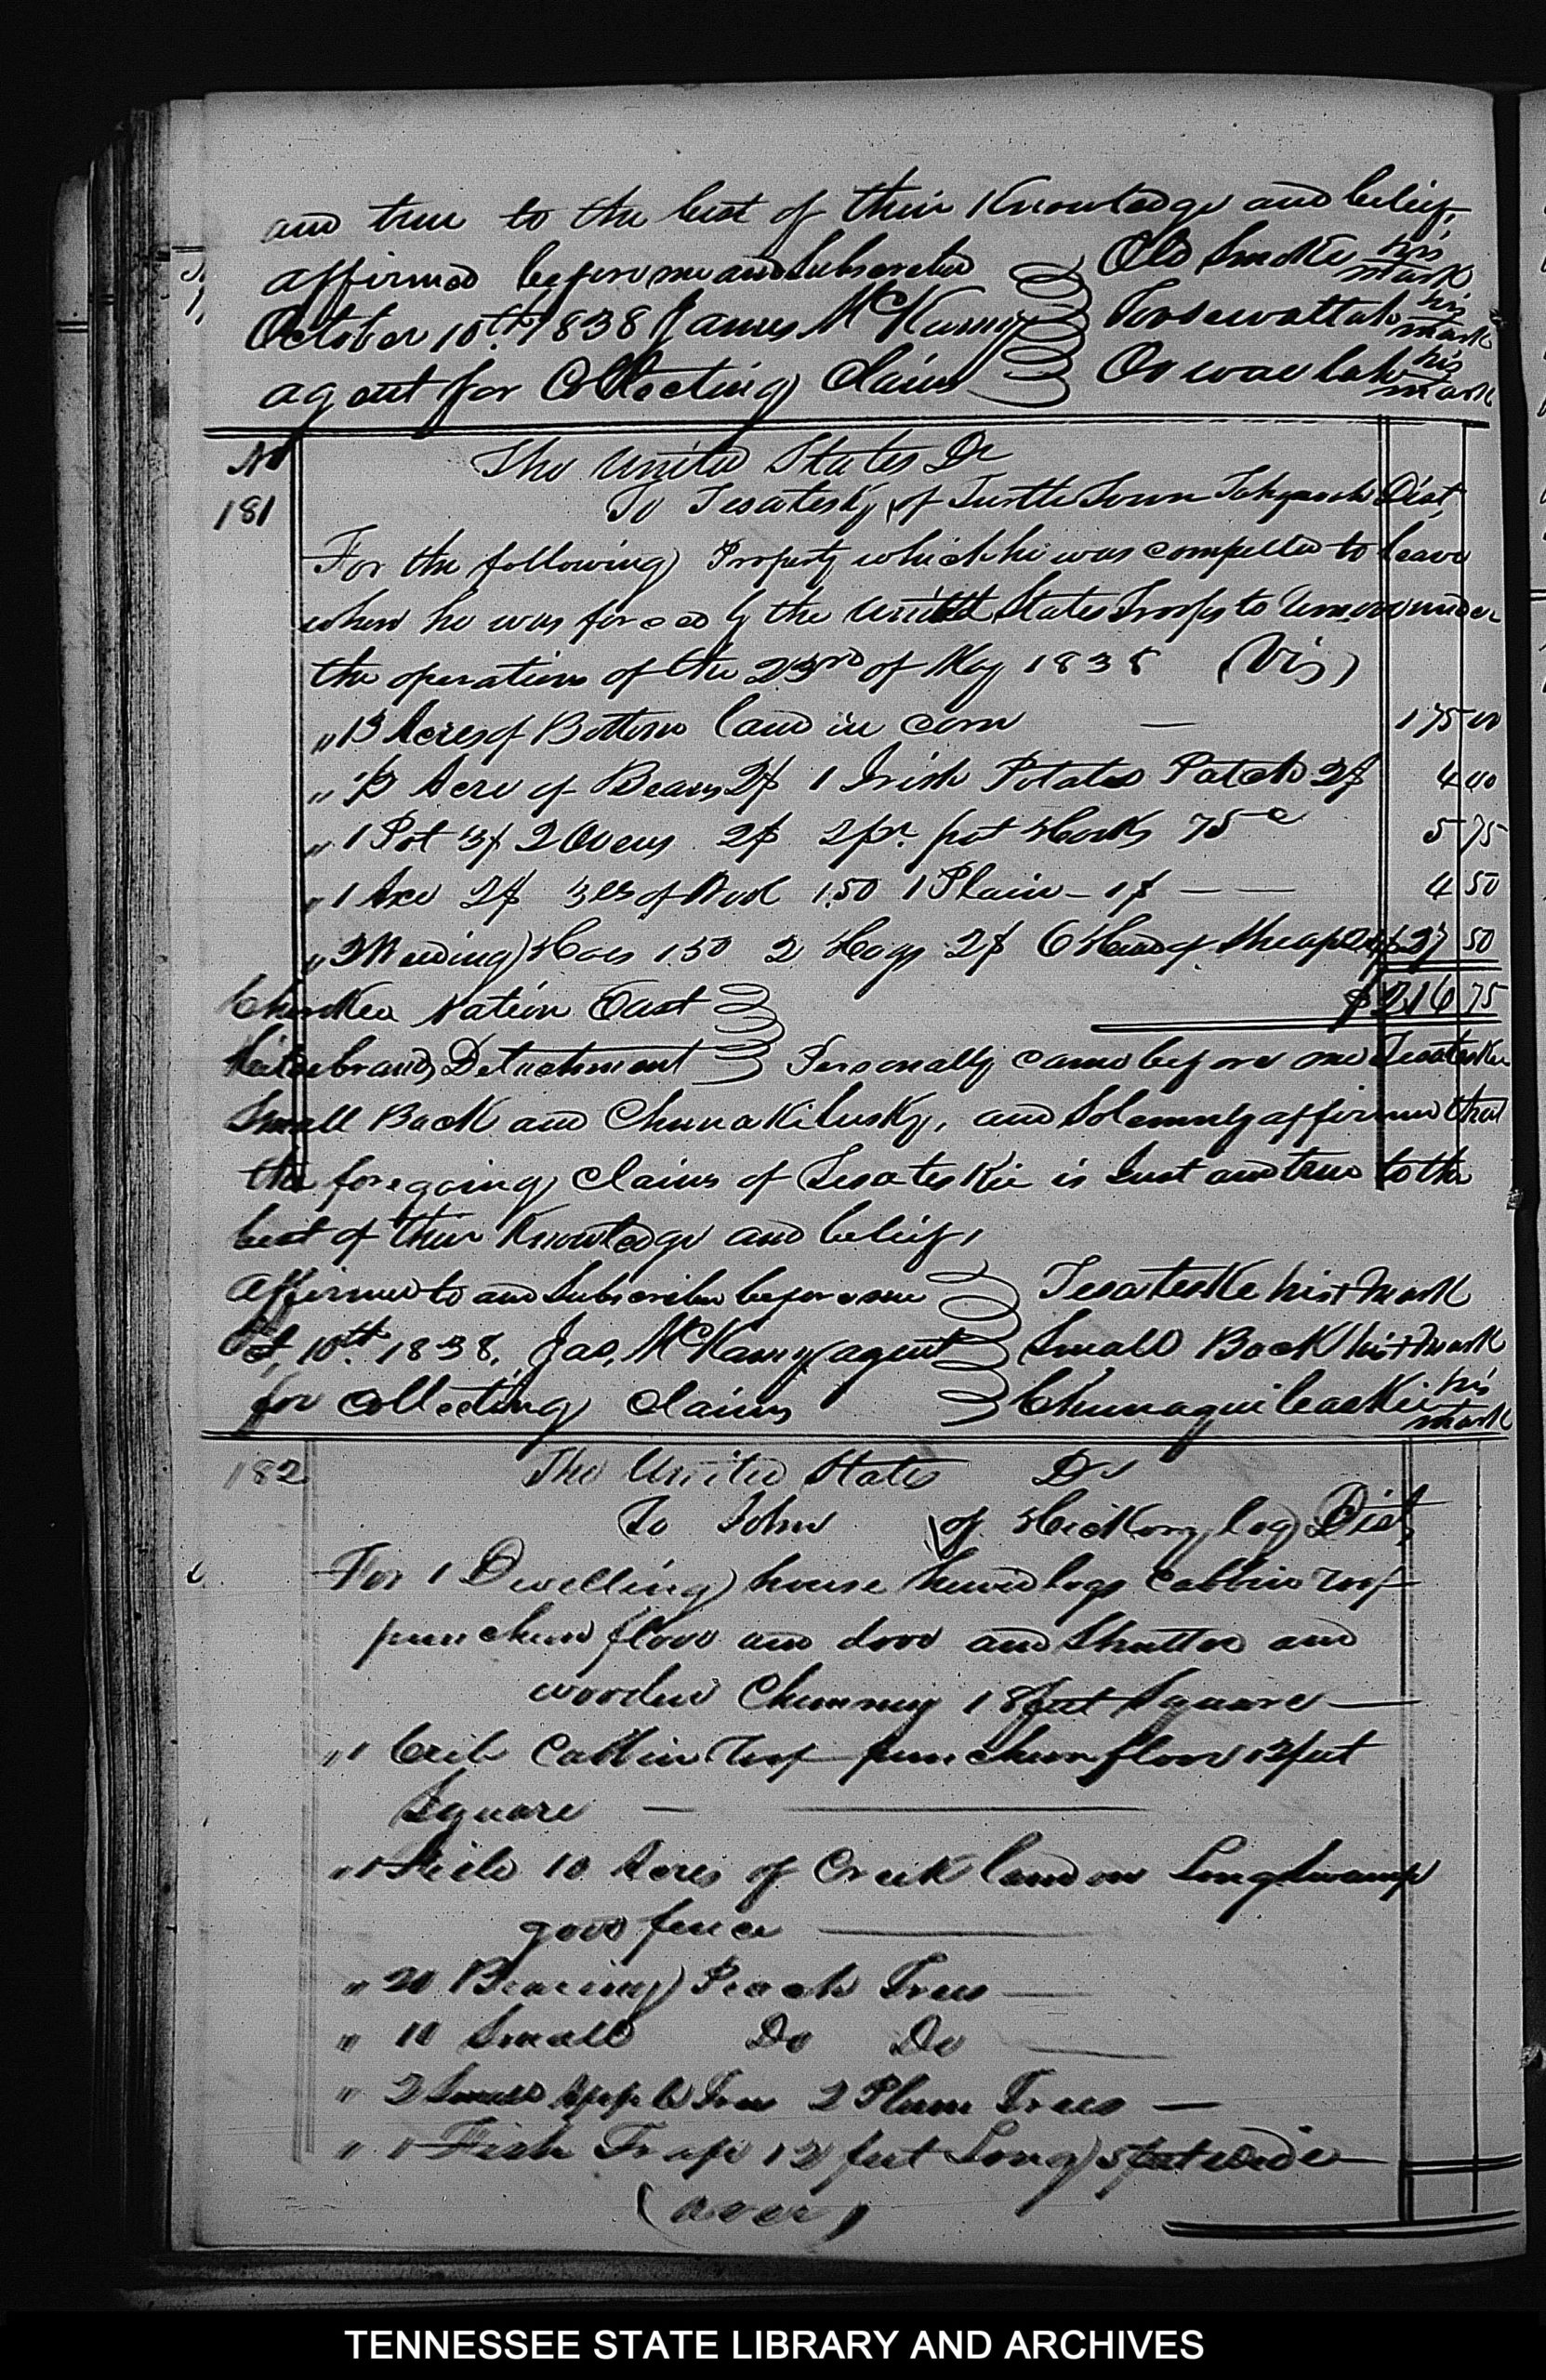 and true to the best of their Knowledge and belief,
affirmed before me and Subscribed Old Smoke his mark
October 10th 1838 James McKamy Toosewattah his mark
agent for Collecting Claims Oo wau lah his mark
No The United States Dr
181 To Tesatesky of Turtle Town Dist,
For the following Property which he was compelled to leave
when he was forced by the United States Troops to remove under
the operations of the 23rd of May 1838 (Viz)
" Acres of Bottom land in corn — 175 00
" Acre of Beans 2$ 1 Irish Potato Patch 2$ 4 00
" 1 Pot 3$ 2 Ovens 2$ 2 pr. pot Hooks 75c 5 75
" 1 Axe 2$ 3 lbs of Wool 1.50 1 Plain – 1$ — — 4 50
" Weeding Hoes 1.50 2 Hogs 2$ 6 Head of Sheep 27 50
Cherokee Nation East $216 75
Detachment Personally came before me Tesateskee
Small Back and Chunakilusky, and Solemnly affirmed that
the foregoing claims of Tesateskie is Just and true to the
best of their Knowledge and belief,
Affirmed to and Subscribed before me Tesateske his + Mark
Oct, 10th 1838, Jas, McKamy agent Small Back his + mark
for collecting claims Chunaquileaskie his mark
182 The United States Dr
To John of Hickory log Dist,
For 1 Dwelling house hewed logs cabbin roof
puncheon floor and door and Shutter and
wooden Chimney 18 feet Square —
" 1 Crib Cabbin roof puncheon floor 12 feet
Square — —
" 1 Field 10 Acres of Creek land on Long Swamp
good fence —
" 20 Bearing Peach Trees —
" 10 Small Do Do —
" 2 Small Apple Trees 2 Plum Trees —
" 1 Fish Trap 12 feet Long 5 feet wide —
(over)
TENNESSEE STATE LIBRARY AND ARCHIVES